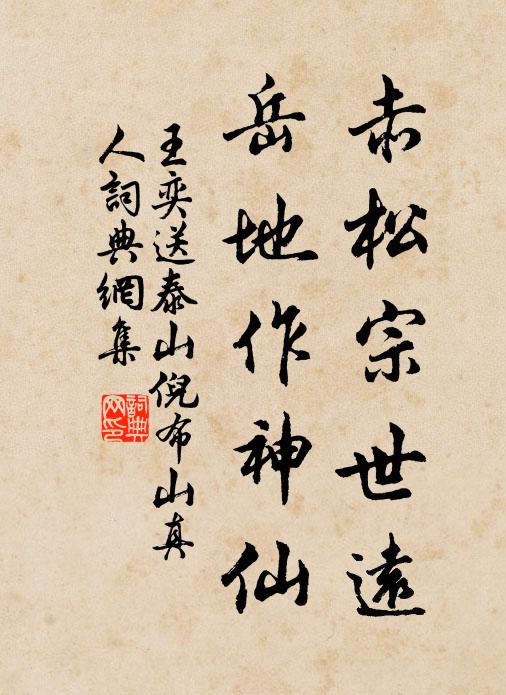 赤松宗世遠
岳地作神仙
王奕送泰山倪布山真
人詞典網集
詞典網印